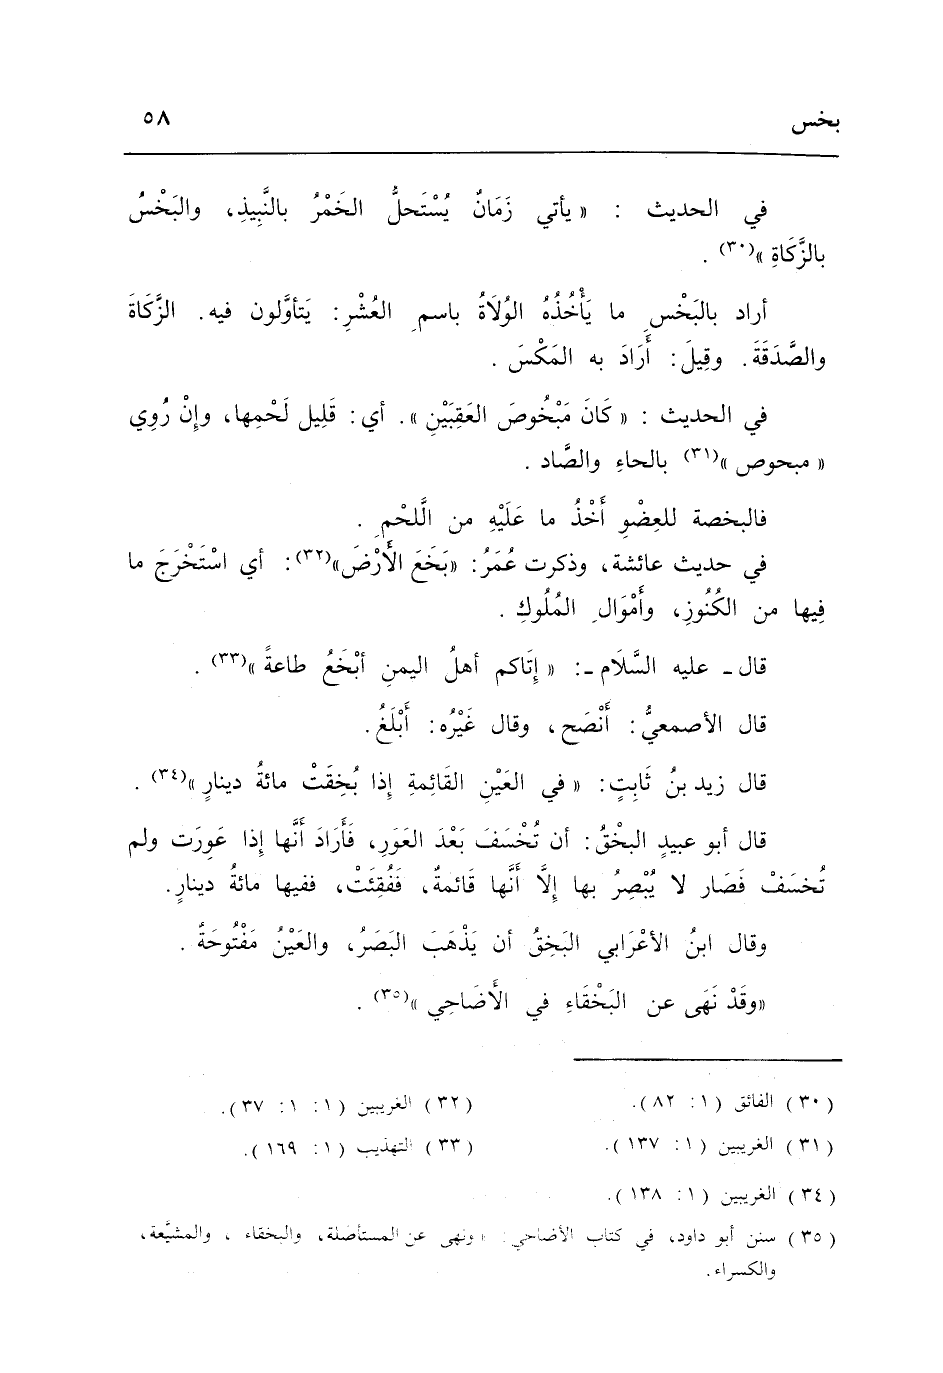 بخس ٥٨
في الحديث : « يأتي زَمَانٌ يُسْتَحلُّ الخَمْرُ بالنَّبِيذِ، والبَخْسُ
بالزَّكَاةِ »(٣٠) .
أراد بالبَخْسِ ما يَأْخُذُهُ الوُلَاةُ باسمِ العُشْرِ: يَتأوَّلون فيه. الزَّكَاةَ
والصَّدَقَةَ. وقِيلَ: أَرَادَ به المَكْسَ .
في الحديث : « كَانَ مَبْخُوصَ العَقِبَيْنِ ». أي: قَلِيل لَحْمِها، وإِنْ رُوِي
« مبحوص »(٣١) بالحاءِ والصَّاد .
فالبخصة للعِضْوِ أَخْذُ ما عَلَيْهِ من الَّلحْمِ .
في حديث عائشة، وذكرت عُمَرُ: «بَخَعَ الأَرْضَ»(٣٢): أي اسْتَخْرَجَ ما
فِيها من الكُنُوزِ، وأَمْوَالِ المُلُوكِ .
قال ـ عليه السَّلَام ـ: « إِتَاكم أهلُ اليمنِ أبْخَعُ طاعةً »(٣٣) .
قال الأصمعيُّ: أَنْصَح، وقال غَيْرُه: أَبْلَغُ.
قال زيد بنُ ثَابِتٍ: « في العَيْنِ القَائِمةِ إِذا بُخِقَتْ مائةُ دينارٍ »(٣٤) .
قال أبو عبيدٍ البخْقُ: أن تُخْسَفَ بَعْدَ العَوَرِ، فَأَرَادَ أَنَّها إِذا عَوِرَت ولم
تُخسَفْ فَصَار لا يُبْصِرُ بها إِلَّا أَنَّها قَائمةٌ، فَفُقِئَتْ، ففيها مائةُ دينارٍ.
وقال ابنُ الأعْرَابي البَخِقُ أن يَذْهَبَ البَصَرُ، والعَيْنُ مَفْتُوحَةٌ .
«وقَدْ نَهَى عن البَخْقَاءِ في الأَضَاحِي »(٣٥) .
(٣٠) الفائق (١: ٨٢).
(٣٢) الغريبين (١: ١: ٣٧).
(٣١) الغريبين (١: ١٣٧).
(٣٣) التهذيب (١: ١٦٩).
(٣٤) الغريبين (١: ١٣٨).
(٣٥) سنن أبو داود، في كتاب الأضاحي: « ونهى عن المستأصلة، والبخقاء ، والمشيَّعة،
والكسراء.